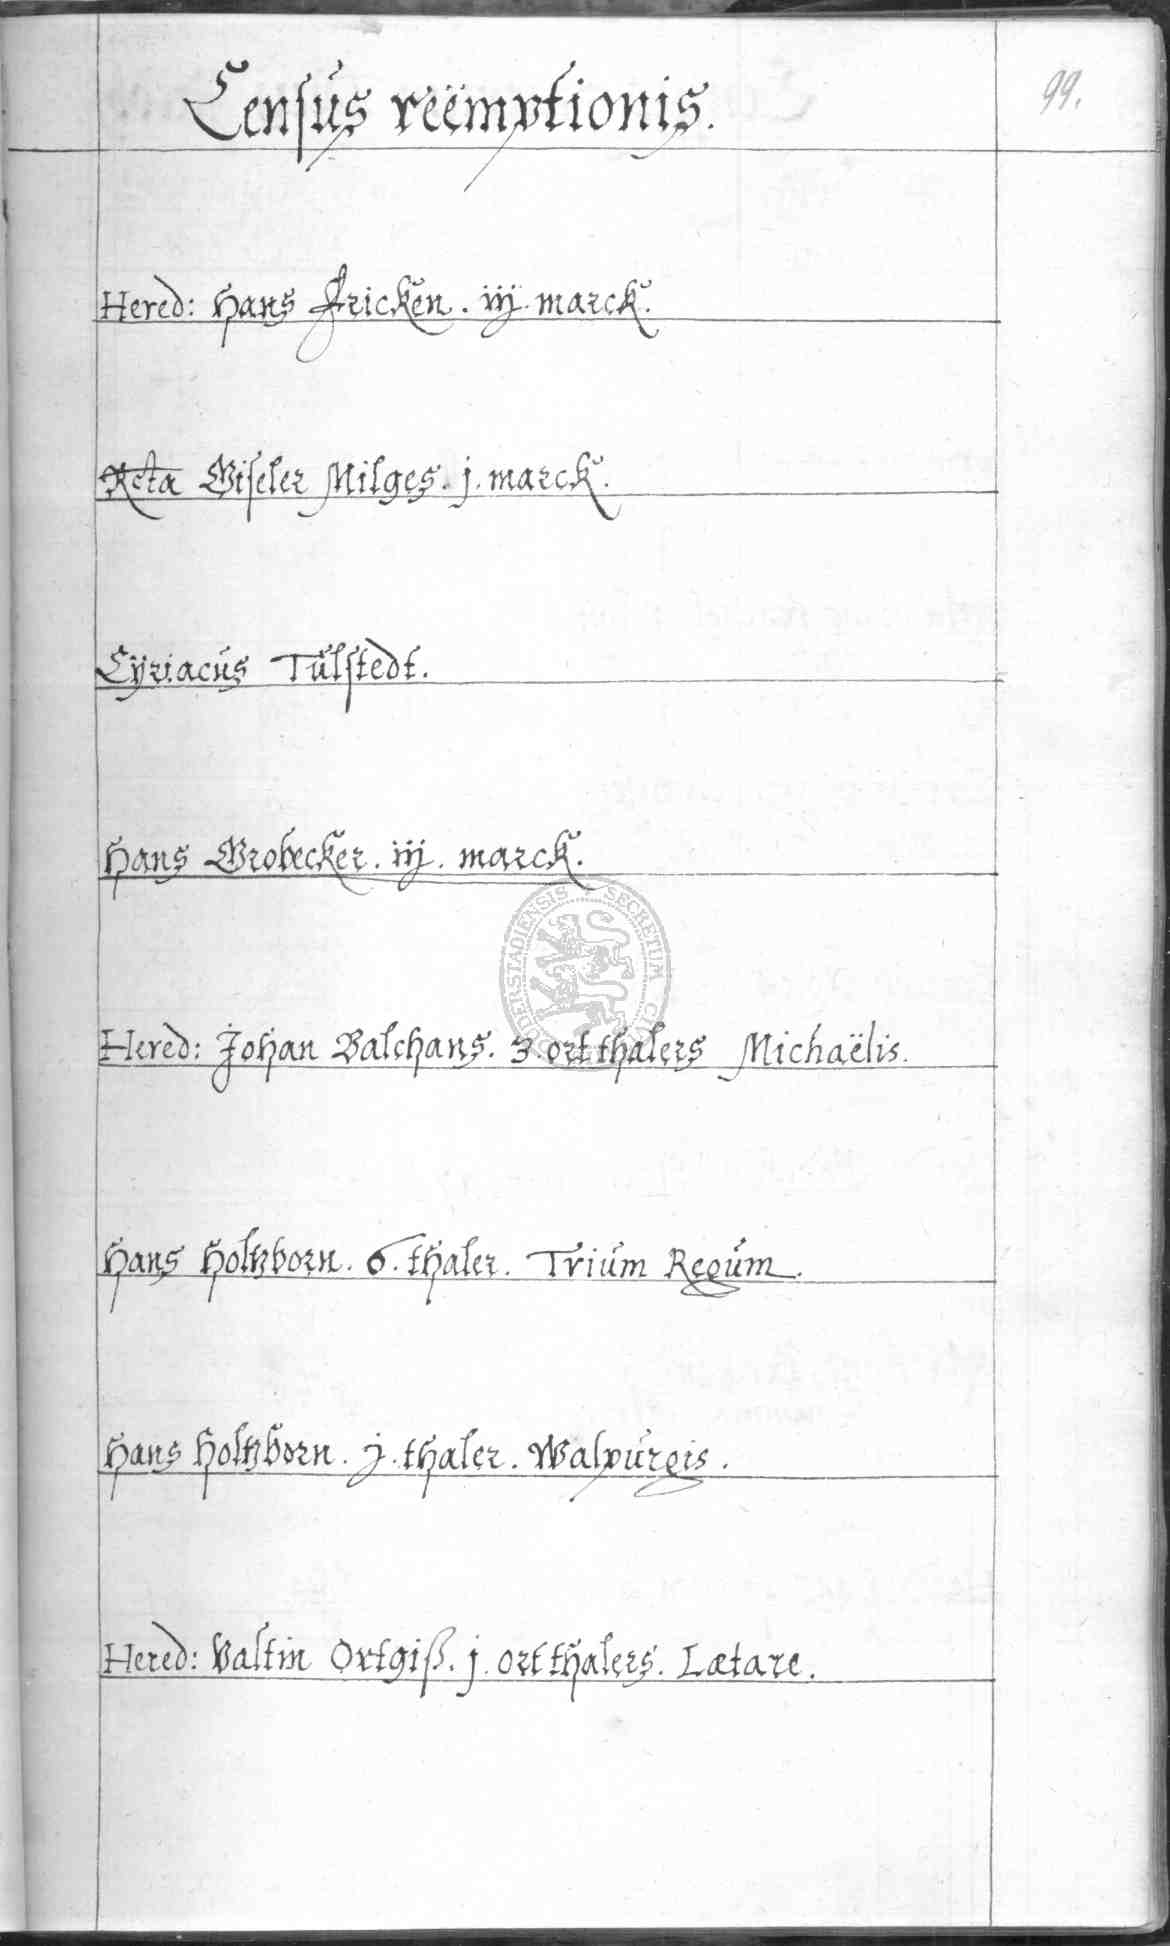 Censùs reëmptionis.
99.
Hered: Hans Fricken. iij. marck.
Rcta Giseler Milges. j. marck.
Cÿriacùs Tùlstedt.
Hans Grobecker. iij. marck.
Hered: Johan Balchans. 3. ort thalers Michaëlis.
Hans Holtzborn. 6. thaler. Triùm Regùm.
Hans Holtzborn. j. thaler. Walpùrgis.
Hered: Valtin Ortgiß. j. ort thalers. Lætare.
SECRETUM